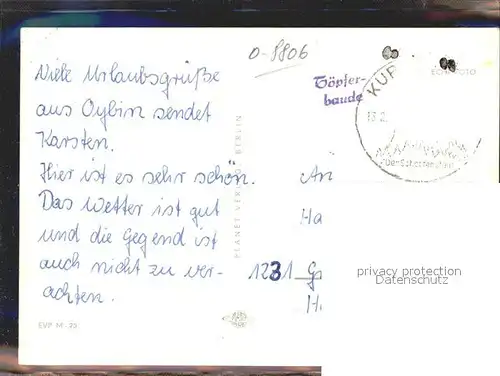 O-8806
Viele Urlaubsgrüße
aus Oybin sendet
Karsten.
Hier ist es sehr schön.
Das Wetter ist gut
und die Gegend ist
auch nicht zu ver-
achten.
EVP M -,22
PLANET VERLAG BERLIN
Töpfer-
baude
ECHT FOTO
KUR
13.2.
Ha
1231 G
privacy protection
Datenschutz